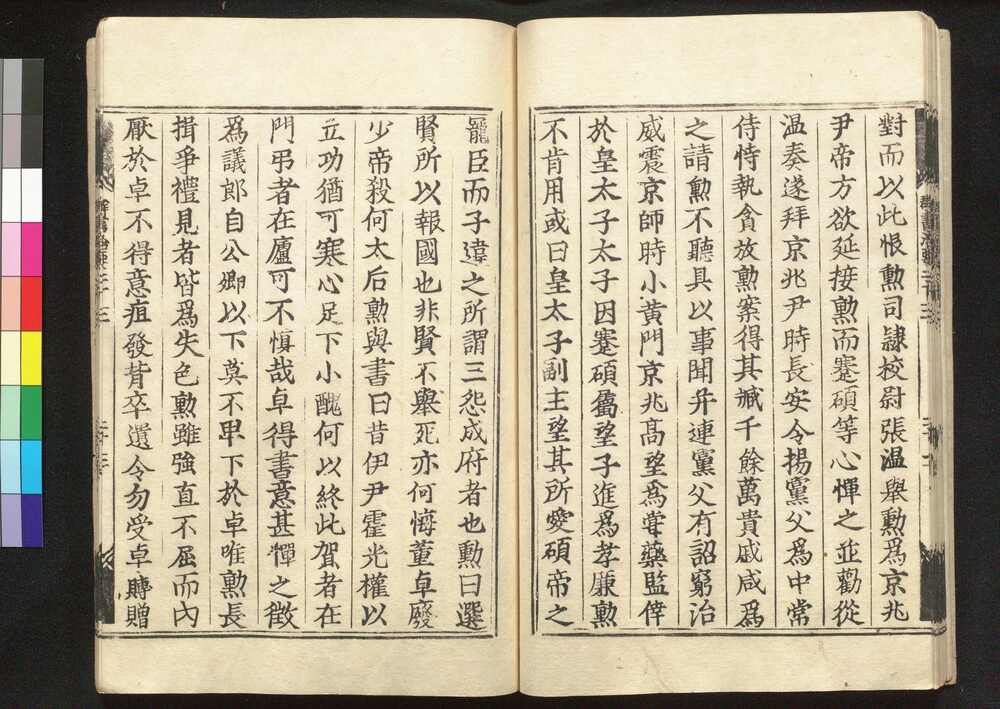 對而以此恨勲司隷校尉張温舉勲爲京兆
尹帝方欲延接勲而蹇碩等心憚之並勸從
温奏遂拜京兆尹時長安令揚黨父爲中常
侍恃執貪放勲案得其臧千餘萬貴戚咸爲
之請勲不聽具以事聞幷連黨父有詔窮治
威震京師時小黄門京兆髙望爲甞藥監倖
於皇太子太子因蹇碩屬望子進爲孝廉勲
不肯用或曰皇太子副主望其所愛碩帝之
寵臣而子違之所謂三怨成府者也勲曰選
賢所以報國也非賢不舉死亦何悔董卓廢
少帝殺何太后勲與書曰昔伊尹霍光權以
立功猶可寒心足下小醜何以終此賀者在
門弔者在廬可不愼哉卓得書意甚憚之徵
爲議郎自公卿以下莫不卑下於卓唯勲長
揖爭禮見者皆爲失色勲雖強直不屈而內
厭於卓不得意疽發背卒遺令勿受卓賻贈